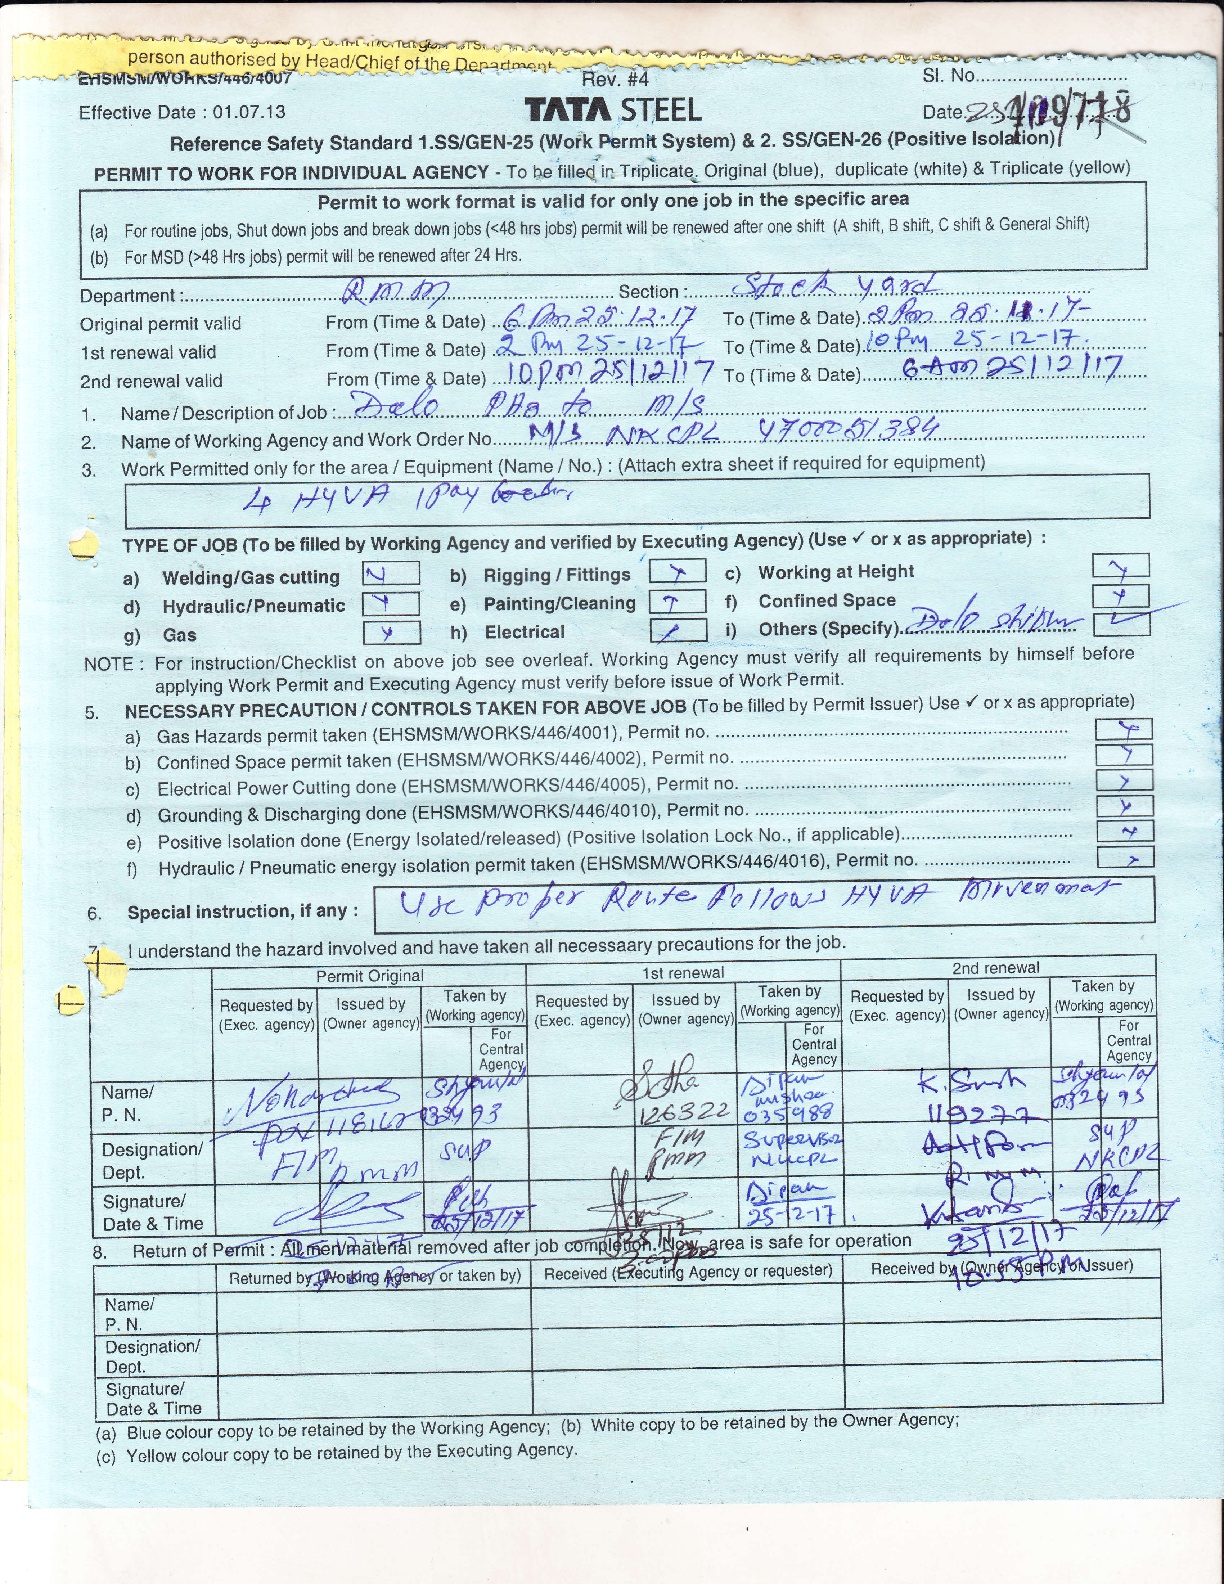 person authorised by Head/Chief of the Department
EHSMSM/WORKS/446/4007 Rev. #4 Sl. No.
Effective Date : 01.07.13 TATA STEEL Date.
Reference Safety Standard 1.SS/GEN-25 (Work Permit System) & 2. SS/GEN-26 (Positive Isolation)
PERMIT TO WORK FOR INDIVIDUAL AGENCY - To be filled in Triplicate, Original (blue), duplicate (white) & Triplicate (yellow)
Permit to work format is valid for only one job in the specific area
(a) For routine jobs, Shut down jobs and break down jobs (<48 hrs jobs) permit will be renewed after one shift (A shift, B shift, C shift & General Shift)
(b) For MSD (>48 Hrs jobs) permit will be renewed after 24 Hrs.
Department : RMM Section : Stock yard
Original permit valid From (Time & Date) To (Time & Date)
1st renewal valid From (Time & Date) 2 Pm 25-12-17 To (Time & Date) 10 Pm 25-12-17.
2nd renewal valid From (Time & Date) 10 pm 25/12/17 To (Time & Date) 6 Am 25/12/17
1. Name / Description of Job : Dolo to M/S
2. Name of Working Agency and Work Order No. M/S NKCPL 4700051384
3. Work Permitted only for the area / Equipment (Name / No.) : (Attach extra sheet if required for equipment)
4 HYVA 1 Pay
TYPE OF JOB (To be filled by Working Agency and verified by Executing Agency) (Use ✓ or x as appropriate) :
a) Welding/Gas cutting b) Rigging / Fittings c) Working at Height
d) Hydraulic/Pneumatic e) Painting/Cleaning f) Confined Space
g) Gas h) Electrical i) Others (Specify) Dolo
NOTE : For instruction/Checklist on above job see overleaf. Working Agency must verify all requirements by himself before
applying Work Permit and Executing Agency must verify before issue of Work Permit.
5. NECESSARY PRECAUTION / CONTROLS TAKEN FOR ABOVE JOB (To be filled by Permit Issuer) Use ✓ or x as appropriate)
a) Gas Hazards permit taken (EHSMSM/WORKS/446/4001), Permit no.
b) Confined Space permit taken (EHSMSM/WORKS/446/4002), Permit no.
c) Electrical Power Cutting done (EHSMSM/WORKS/446/4005), Permit no.
d) Grounding & Discharging done (EHSMSM/WORKS/446/4010), Permit no.
e) Positive Isolation done (Energy Isolated/released) (Positive Isolation Lock No., if applicable)
f) Hydraulic / Pneumatic energy isolation permit taken (EHSMSM/WORKS/446/4016), Permit no.
6. Special instruction, if any : Use proper Route Follows HYVA
7. I understand the hazard involved and have taken all necessaary precautions for the job.
Permit Original 1st renewal 2nd renewal
Requested by (Exec. agency) Issued by (Owner agency) Taken by (Working agency) For Central Agency Requested by (Exec. agency) Issued by (Owner agency) Taken by (Working agency) For Central Agency Requested by (Exec. agency) Issued by (Owner agency) Taken by (Working agency) For Central Agency
Name/ P. N. 126322 Dipan mishra 035988 K. Singh 119277 032493
Designation/ Dept. FIM RMM SUP FIM RMM Supervisor NKCPL R.M.M. SUP NKCPL
Signature/ Date & Time 25/12/17 Dipan 25-12-17 25/12/17 25/12/17
8. Return of Permit : All men/material removed after job completion. Now, area is safe for operation
Returned by (Working Agency or taken by) Received (Executing Agency or requester) Received by (Owner Agency or Issuer)
Name/ P. N.
Designation/ Dept.
Signature/ Date & Time
(a) Blue colour copy to be retained by the Working Agency; (b) White copy to be retained by the Owner Agency;
(c) Yellow colour copy to be retained by the Executing Agency.